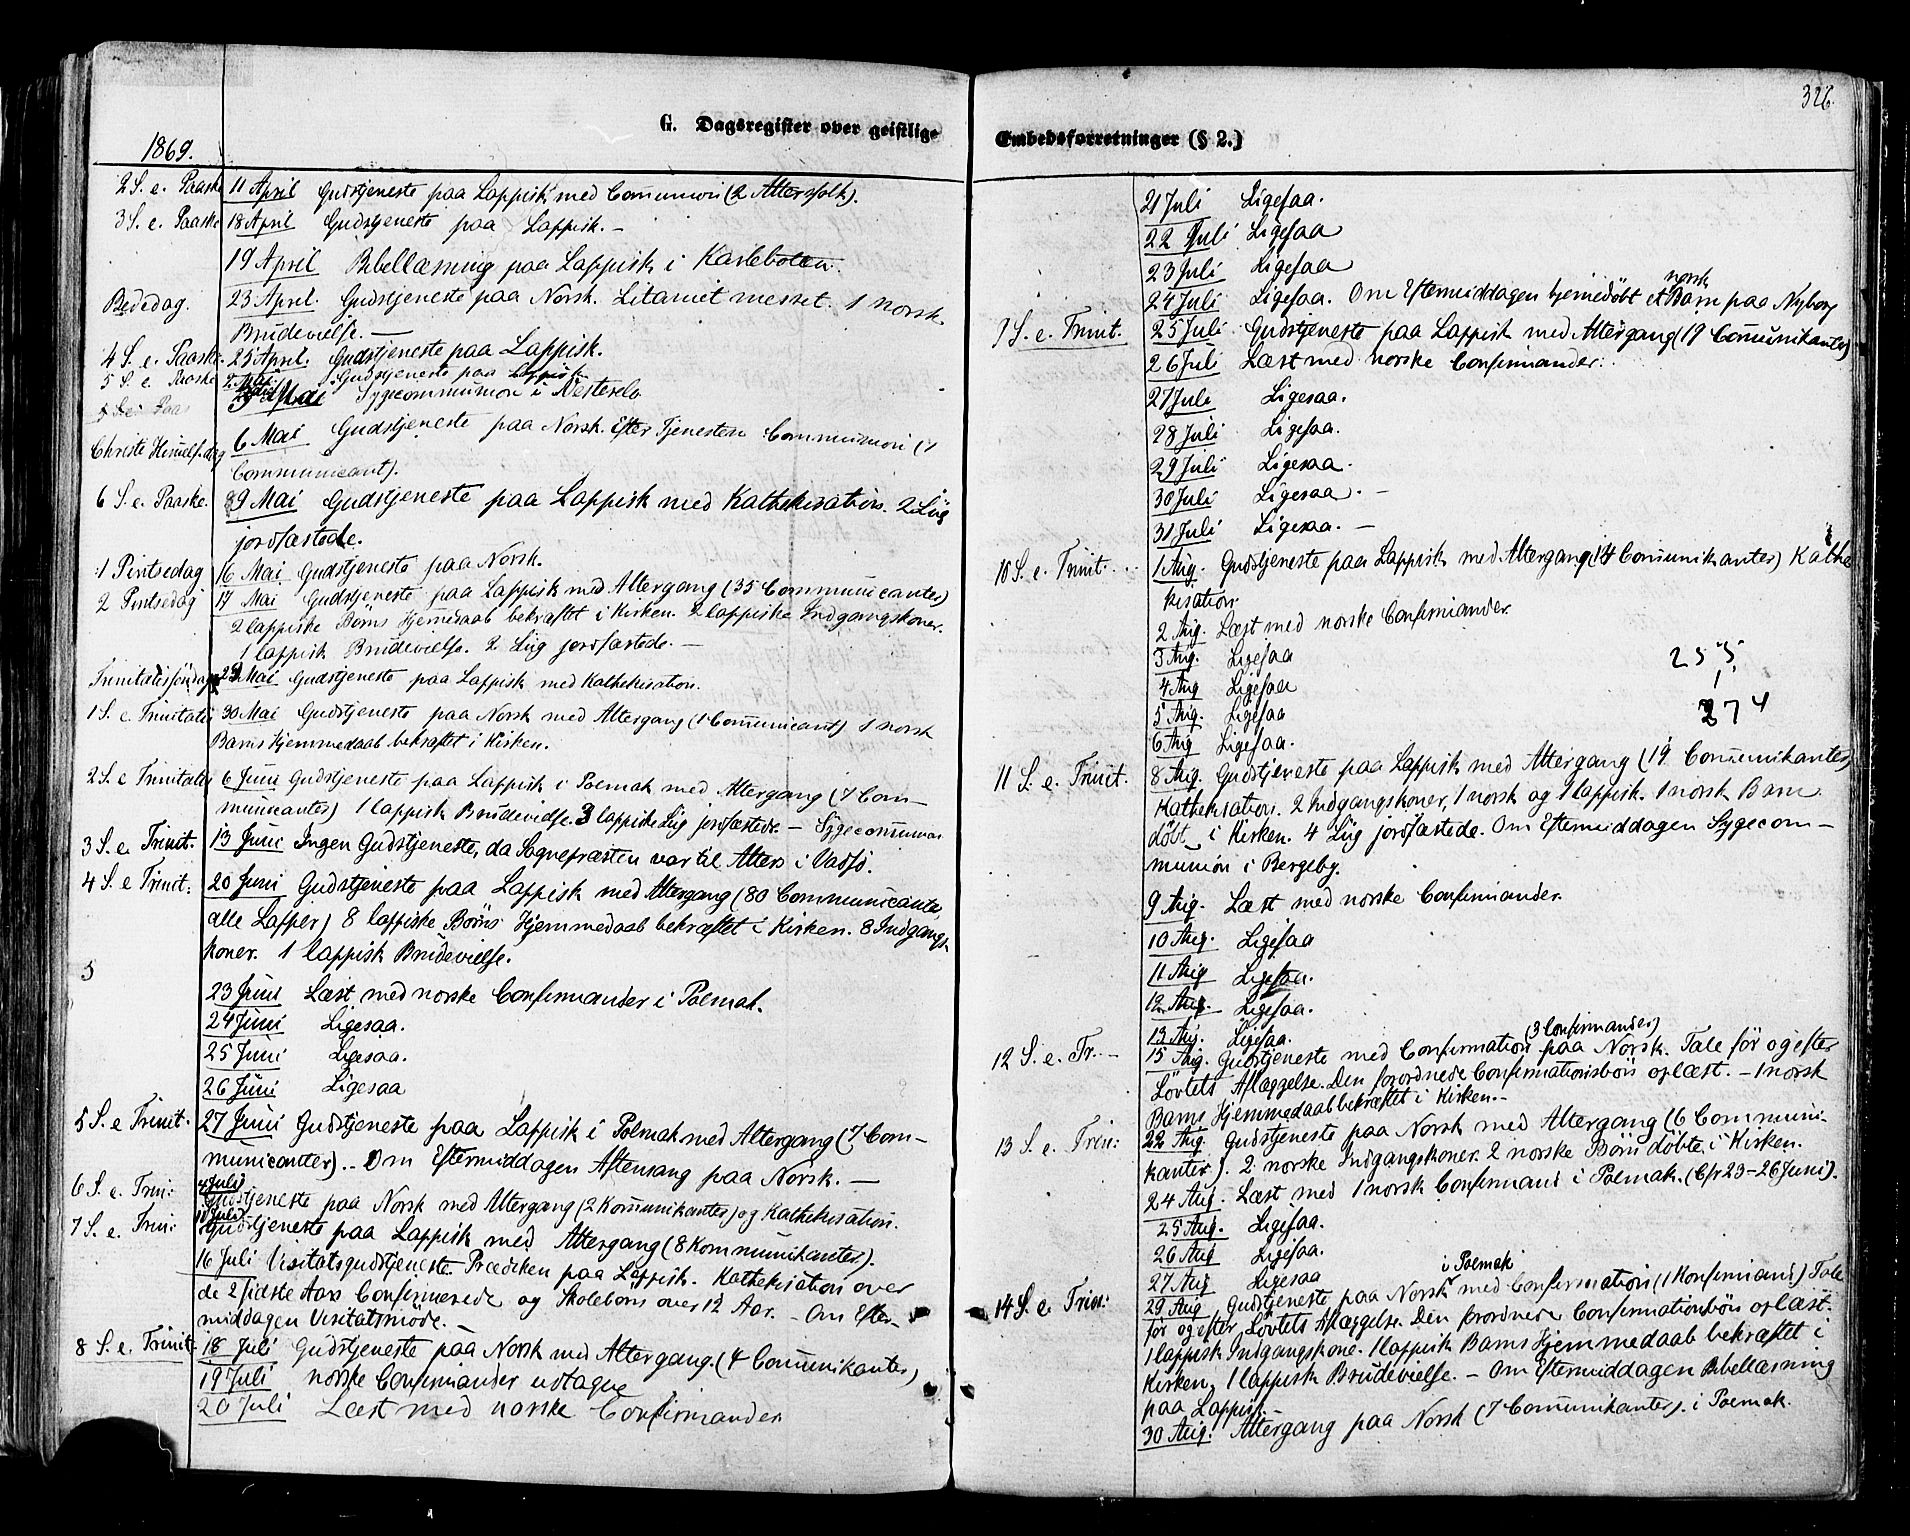 G. Dagsregister over geistlige
1869.
2 S. e. Paaske 11 April Gudstjeneste paa Lappisk med Communion (2 Altersfolk).
3 S. e. Paaske 18 April Gudstjeneste paa Lappisk. –
19 April Bibellæsning paa Lappisk i Karlebotten.
Bededag. 23 April. Gudstjeneste paa Norsk. Litaniet messet. 1 norsk
Brudevielse. —
4 S. e. Paaske. 25 April. Gudstjeneste paa Lappisk.
5 S. e. Paaske 2 Mai Gudstjeneste paa Lappisk
Mai Sygecommunion i Næsterelv
Christi Himelf.dag 6 Mai Gudstjeneste paa Norsk. Efter Tjenesten Communion (1
Communicant).
6 S. e. Paaske. 9 Mai Gudstjeneste paa Lappisk med Kathekisation. 2 Liig
jordfæstede.
1 Pintsedag 16 Mai Gudstjeneste paa Norsk.
2 Pintsedag 17 Mai Gudstjeneste paa Lappisk med Altergang (35 Communicanter)
2 lappiske Børns Hjemmedaab bekræftet i Kirken. 2 lappiske Indgangskoner.
1 lappisk Brudevielse. 2 Liig jordfæstede. —
Trinitatissöndag 23 Mai Gudstjeneste paa Lappisk med Kathekisation.
1 S. e. Trinitatis 30 Mai Gudstjeneste paa Norsk med Altergang (1 Communicant) 1 norsk
Barns Hjemmedaab bekræftet i Kirken.
2 S. e Trinitatis 6 Juni Gudstjeneste paa Lappisk i Polmak med Altergang (7 Com–
municanter) 1 lappisk Brudevielse. 3 lappiske Liig jordfæstede. – Sygecommunion
3 S. e. Trinit. 13 Juni Ingen Gudstjeneste, da Sognepræsten var til Alters i Vadsö.
4 S. e Trinit: 20 Juni Gudstjeneste paa Lappisk med Altergang (80 Communicanter,
alle Lapper) 8 lappiske Børns Hjemmedaab bekræftet i Kirken. 8 Indgangs
koner. 1 lappisk Brudevielse.
5
23 Juni Læst med norske Confirmander i Polmak.
24 Juni Ligesaa.
25 Juni Ligesaa.
26 Juni Ligesaa
5 S. e Trinit. 27 Juni Gudstjeneste paa Lappisk i Polmak med Altergang (7 Com–
municanter). – Om Eftermiddagen Aftensang paa Norsk. —
6 S. e. Trin: 4 Juli Gudstjeneste paa Norsk med Altergang (2 Kommunikanter) og Kathekisation.
7 S. e. Trin: 11 Juli Gudstjeneste paa Lappisk med Altergang (8 Kommunikanter).
16 Juli Visitatsgudstjeneste. Prædiken paa Lappisk. Kathekisation over
de 2 sidste Aars Confirmerede og Skolebørn over 12 Aar. – Om Efter–
middagen Visitatsmöde. –
8 S. e. Trinit. 18 Juli Gudstjeneste paa Norsk med Altergang. (4 Communikanter)
19 Juli norske Confirmander udtagne
20 Juli Læst med norske Confirmander
326.
Embedsforretninger (§ 2.)
21 Juli Ligesaa.
22 Juli Ligesaa
23 Juli Ligesaa
24 Juli Ligesaa. Om Eftermiddagen hjemedöbt et norsk Barn paa Nyborg
9 S. e. Trinit. 25 Juli Gudstjeneste paa Lappisk med Altergang (19 Communikanter)
26 Juli Læst med norske Confirmander.
27 Juli Ligesaa.
28 Juli Ligesaa.
29 Juli Ligesaa.
30 Juli Ligesaa. –
31 Juli Ligesaa. –
10 S. e. Trinit. 1 Aug. Gudstjeneste paa Lappisk med Altergang (14 Communikanter) Kathe
kisation.
2 Aug. Læst med norske Confirmander.
3 Aug. Ligesaa
4 Aug Ligesaa
5 Aug. Ligesaa
6 Aug Ligesaa.
255
274
11 S. e. Trinit. 8 Aug. Gudstjeneste paa Lappisk med Altergang (19 Communikanter)
Kathekisation. 2 Indgangskoner, 1 norsk og 1 lappisk. 1 norsk Barn
döbt i Kirken. 4 Liig jordfæstede. Om Eftermiddagen Sygecom –
munion i Bergeby.
9 Aug. Læst med norske Confirmander.
10 Aug. Ligesaa
11 Aug Ligesaa.
12 Aug. Ligesaa.
13 Aug. Ligesaa.
12 S. e. Tr. – 15 Aug. Gudstjeneste med Confirmation (3 Confirmander) paa Norsk. Tale för og efter
Løvtets Aflæggelse. Den forordnede Confirmationsbön oplæst. – 1 norsk
Barns Hjemmedaab bekræftet i Kirken. –
13 S. e. Trin: 22 Aug. Gudstjeneste paa Norsk med Altergang (6 Communi–
kanter). 2 norske Indgangskoner. 2 norske Börn döbte i Kirken.
24 Aug. Læst med 1 norsk Confirmand i Polmak. (Cfr 23–26 Juni).
25 Aug. Ligesaa.
26 Aug Ligesaa.
27 Aug Ligesaa
14 S. e. Trin: 29 Aug Gudstjeneste paa Norsk i Polmak med Confirmation (1 Konfirmand) Tale
för og efter Løvtets Aflæggelse. Den forordnede Confirmationbön oplæst.
1 lappisk Indgangskone. 1 lappisk Barns Hjemmedaab bekræftet i
Kirken, 1 lappisk Brudevielse. – Om Eftermiddagen Bibellæsning
paa Lappisk. –
30 Aug. Altergang paa Norsk (7 Communikanter). i Polmak.